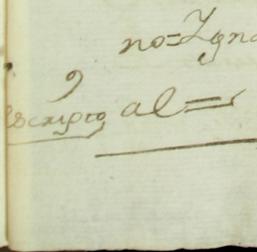 no=Ygna
escripto al=